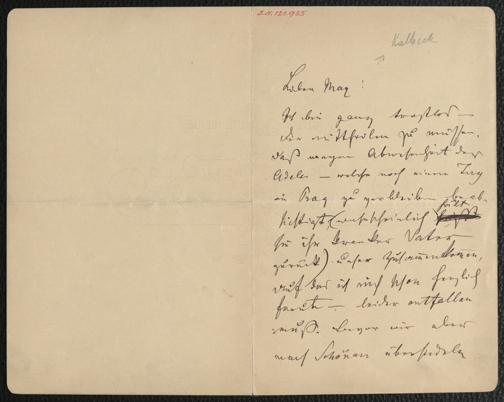 I.N. 121.985
Kalbeck
Lieber Max!
Ich bin ganz trostlos –
Dir mittheilen zu müssen,
daß wegen Abwesenheit der
Adele – welche noch einen Tag
in Prag zu verbleiben beab-
sichtigt (wahrscheinlich hält
sie ihr kranker Vater
zurück) unser Zusammenkommen,
auf das ich mich schon herzlich
freute – leider entfallen
muß. Bevor wir aber
nach Schönau übersiedeln